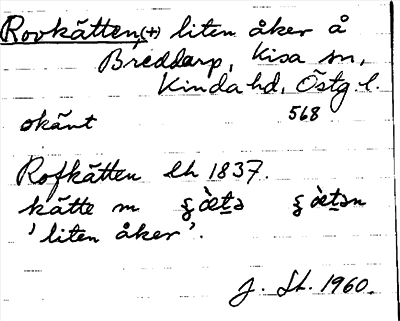 Rovkätten (+) liten åker å
Breddarp, Kisa sn,
Kinda hd, Östg. l.
568
okänt
Rofkätten lh 1837.
kätte m
'liten åker'.
J. St. 1960.